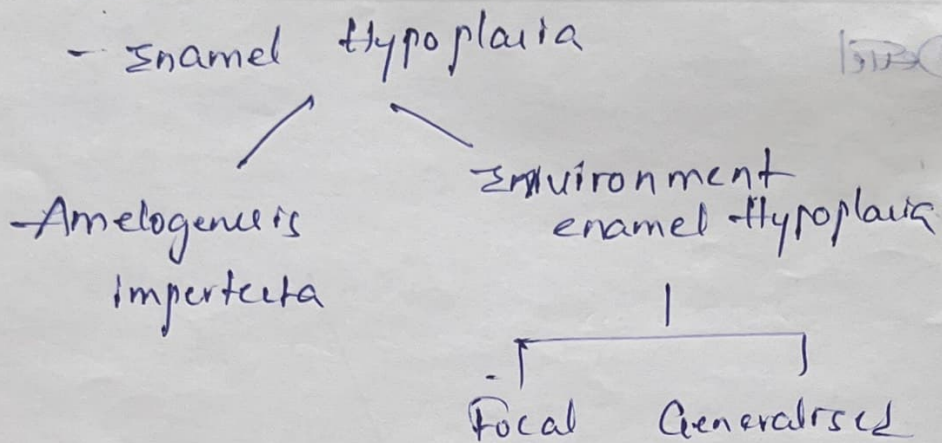 - Enamel Hypoplasia
Amelogenesis
imperfecta
Environment
enamel Hypoplasia
Focal Generalised